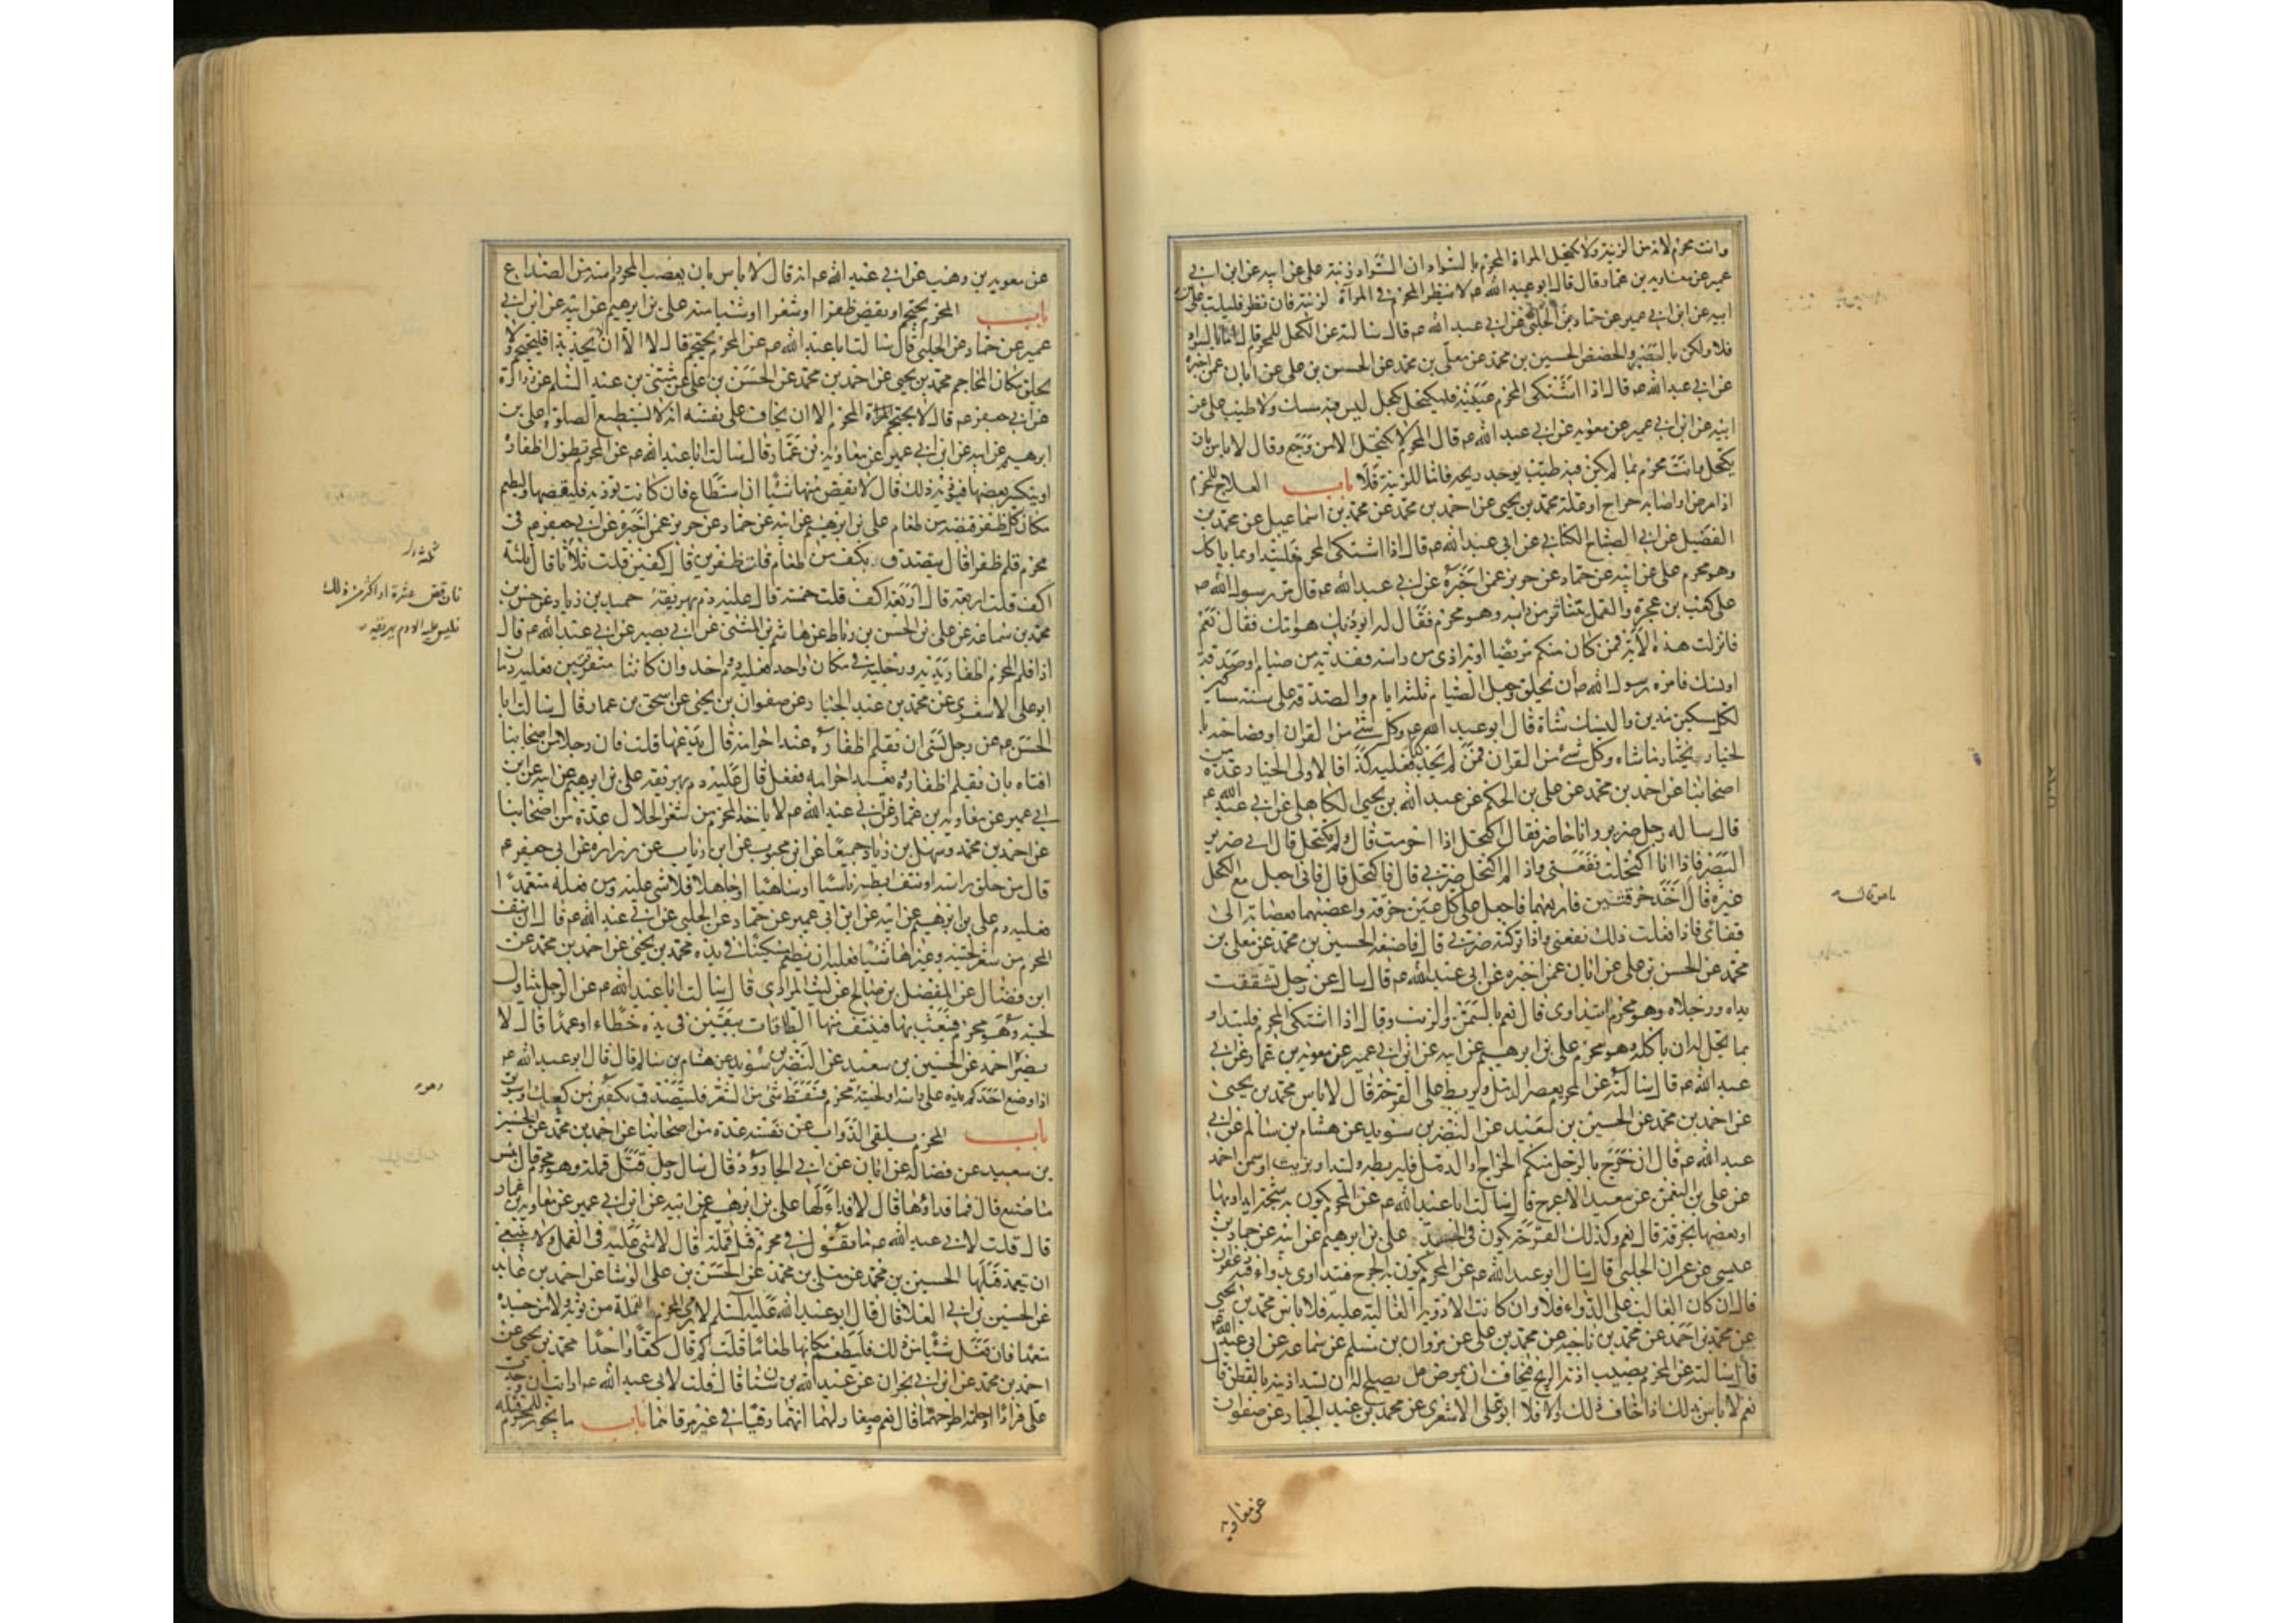 وانت محرم لانه من الزينة ولا تكتحل المراة المحرم بالسواد ان السواد زينة علي عن ابيه عن ابن ابي
عمير عن معاوية بن عمار قال قال ابو عبد الله ع لا ينظر المحرم في المرآة لزينة فان نظر فليلب علي عن
ابيه عن ابن ابي عمير عن حماد عن الحلبي عن ابي عبد الله ع قال سالته عن الكحل للمحرم قال اما بالسواد
فلا ولكن بالصبر والحضض الحسين بن محمد عن معلى بن محمد عن الحسن بن علي عن ابان عمن اخبره
عن ابي عبد الله ع قال اذا اشتكى المحرم عينيه فليكتحل بكحل ليس فيه مسك ولا طيب علي عن
ابيه عن ابن ابي عمير عن معوية عن ابي عبد الله ع قال المحرم لا يكتحل الا من وجع وقال لا باس بان
يكتحل وانت محرم بما لم يكن فيه طيب يوجد ريحه فاما للزينة فلا باب العلاج للمحرم
اذا مرض او اصابه جراح او علة محمد بن يحيى عن احمد بن محمد عن محمد بن اسماعيل عن محمد بن
الفضيل عن ابي الصباح الكناني عن ابي عبد الله ع قال اذا اشتكى المحرم فليتداو بما ياكل
وهو محرم علي عن ابيه عن حماد عن حريز عمن اخبره عن ابي عبد الله ع قال مر رسول الله ص
على كعب بن عجرة والقمل يتناثر من راسه وهو محرم فقال له اتوذيك هوامك فقال نعم
فانزلت هذه الآية فمن كان منكم مريضا او به اذى من راسه ففدية من صيام او صدقة
او نسك فامره رسول الله ص ان يحلق وجعل الصيام ثلثة ايام والصدقة على ستة مساكين
لكل مسكين مدين والنسك شاة قال ابو عبد الله ع وكل شئ من القران او فصاحبه با
لخيار يختار ما شاء وكل شئ من القران فمن لم يجد فعليه كذا فالاولى الخيار عدة من
اصحابنا عن احمد بن محمد عن علي بن الحكم عن عبد الله بن يحيى الكاهلي عن ابي عبد الله ع
قال ساله رجل ضرير وانا حاضر فقال اكتحل اذا احرمت قال لا ولم تكتحل قال اني ضرير
البصر فاذا انا اكتحلت نفعني واذا لم اكتحل ضرني قال فاكتحل قال فاني اجعل مع الكحل
غيره قال اخذ خرقتين فاربعهما فاجعل على كل عين خرقة واعصبهما بعصابة الى
قفائي فاذا فعلت ذلك نفعني واذا تركته ضرني قال فاصنعه الحسين بن محمد عن معلى بن
محمد عن الحسن بن علي عن ابان عمن اخبره عن ابي عبد الله ع قال سال عن رجل تشققت
يداه ورجلاه وهو محرم ايتداوى قال نعم بالسمن والزيت وقال اذا اشتكى المحرم فليتداو
بما يحل له ان ياكله وهو محرم علي بن ابرهيم عن ابيه عن ابن ابي عمير عن معوية بن عمار عن ابي
عبد الله ع قال سالته عن المحرم يعصر الدمل ويربط على القرحة قال لا باس محمد بن يحيى
عن احمد بن محمد عن الحسين بن سعيد عن النضر بن سويد عن هشام بن سالم عن ابي
عبد الله ع قال ان خرج بالرجل منكم الخراج او الدمل فليربطه وليتداو بزيت او سمن احمد
عن علي بن النعمن عن سعيد الاعرج قال سالت ابا عبد الله ع عن المحرم يكون به شجة ايداويها
او يعصبها بخرقة قال نعم وكذلك القرحة يكون في الجسد علي بن ابرهيم عن ابيه عن حماد بن
عيسى عن عمران الحلبي قال سال ابو عبد الله ع عن المحرم يكون به الجرح فيتداوى بدواء فيه زعفران
قال ان كان الغالب على الدواء فلا وان كانت الادوية الغالبة عليه فلا باس محمد بن يحيى
عن محمد بن احمد عن محمد بن ناجية عن محمد بن علي عن مروان بن مسلم عن سماعة عن ابي عبد الله ع
قال سالته عن المحرم يصيب اذنه الريح فيخاف ان يمرض هل يصلح له ان يسد اذنيه بالقطن قال
نعم لا باس بذلك اذا خاف ذلك والا فلا ابو علي الاشعري عن محمد بن عبد الجبار عن صفوان
عن معاوية
عن معوية بن وهب عن ابي عبد الله ع انه قال لا باس بان يعصب المحرم راسه من الصداع
باب المحرم يحتجم او يقص ظفرا او شعرا او شيا منه علي بن ابرهيم عن ابيه عن ابن ابي
عمير عن حماد عن الحلبي قال سالت ابا عبد الله ع عن المحرم يحتجم قال لا الا ان لا يجد بدا فليحتجم ولا
يحلق مكان المحاجم محمد بن يحيى عن احمد بن محمد عن الحسن بن علي عن مثنى بن عبد السلم عن زرارة
عن ابي جعفر ع قال لا يحتجم المحرم الا ان يخاف على نفسه انه لا يستطيع الصلوة علي بن
ابرهيم عن ابيه عن ابن ابي عمير عن معاوية بن عمار قال سالت ابا عبد الله ع عن المحرم تطول اظفاره
او ينكسر بعضها فيؤذيه ذلك قال لا يقص منها شيئا ان استطاع فان كانت توذيه فليقصها وليطعم
مكان كل ظفر قبضة من طعام علي بن ابرهيم عن ابيه عن حماد عن حريز عمن اخبره عن ابي جعفر ع في
محرم قلم ظفرا قال يتصدق بكف من طعام قلت ظفرين قال كفين قلت ثلاثا قال ثلثة
اكف قلت اربعة قال اربعة اكف قلت خمسة قال عليه دم يهريقه حميد بن زياد عن حسن بن
محمد بن سماعة عن علي بن الحسن بن رباط عن هاشم بن المثنى عن ابي بصير عن ابي عبد الله ع قال
اذا قلم المحرم اظفار يديه ورجليه في مكان واحد فعليه دم واحد وان كانتا متفرقتين فعليه دمان
ابو علي الاشعري عن محمد بن عبد الجبار عن صفوان بن يحيى عن اسحق بن عمار قال سالت ابا
الحسن ع عن رجل نسى ان يقلم اظفاره عند احرامه قال يدعها قلت فان رجلا من اصحابنا
افتاه بان يقلم اظفاره ويعيد احرامه ففعل قال عليه دم يهريقه علي بن ابرهيم عن ابيه عن ابن
ابي عمير عن معاوية بن عمار عن ابي عبد الله ع لا ياخذ المحرم من شعر الحلال عدة من اصحابنا
عن احمد بن محمد وسهل بن زياد جميعا عن ابن محبوب عن ابن رئاب عن زرارة عن ابي جعفر ع
قال من حلق راسه او نتف ابطه ناسيا او ساهيا او جاهلا فلا شئ عليه ومن فعله متعمدا
فعليه دم علي بن ابرهيم عن ابيه عن ابن ابي عمير عن حماد عن الحلبي عن ابي عبد الله ع قال ان نتف
المحرم من شعر لحيته وغيرها شيئا فعليه ان يطعم مسكينا في يده محمد بن يحيى عن احمد بن محمد عن
ابن فضال عن المفضل بن صالح عن ليث المرادي قال سالت ابا عبد الله ع عن الرجل يتناول
لحيته وهو محرم فيعبث بها فينتف منها الطاقات يبقين في يده خطاء او عمدا قال لا
يضره احمد عن الحسين بن سعيد عن النضر بن سويد عن هشام بن سالم قال قال ابو عبد الله ع
اذا وضع احدكم يده على راسه او لحيته محرم فسقط شئ من الشعر فليتصدق بكفين من كعك او سويق
باب المحرم يلقي الدواب عن نفسه عدة من اصحابنا عن احمد بن محمد عن الحسين
بن سعيد عن فضالة عن ابان عن ابي الجارود قال سال رجل قتل قملة وهو محرم قال بئس
ما صنع قال فما فداؤها قال لا فداء لها علي بن ابرهيم عن ابيه عن ابن ابي عمير عن معاوية بن عمار
قال قلت لابي عبد الله ع ما تقول في محرم قتل قملة قال لا شئ عليه في القمل ولا ينبغي
ان يتعمد قتلها الحسين بن محمد عن معلى بن محمد عن الحسن بن علي الوشا عن احمد بن عايذ
عن الحسين بن ابي العلا قال قال ابو عبد الله عليه السلم لا يرمي المحرم القملة من ثوبه ولا من جسده
متعمدا فان قتل شيئا من ذلك فليطعم مكانها طعاما قلت كم قال كفا واحدا محمد بن يحيى عن
احمد بن محمد عن ابن ابي نجران عن عبد الله بن سنان قال قلت لابي عبد الله ع ارايت ان وجدت
علي قرادا او حلمة اطرحهما قال نعم وصغار لهما انهما رقيا في غير مرقاهما باب ما يجوز للمحرم قتله
فان قص عشرة او اكثر من ذلك
فليس عليه الا دم يهريقه